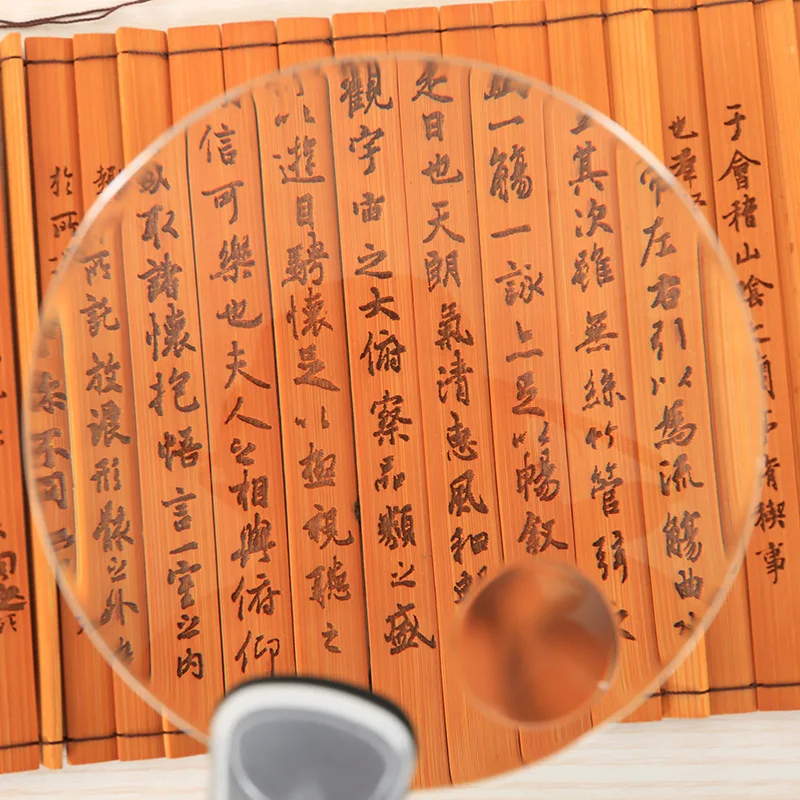 于會稽山陰之蘭亭脩禊事
也羣
帶左右引以為流觴曲
其次雖無絲竹管弦之
一觴一詠亦足以暢叙
是日也天朗氣清惠風和暢
觀宇宙之大俯察品類之盛
以遊目騁懷足以極視聽之
信可樂也夫人之相與俯仰
取諸懷抱悟言一室之内
所託放浪形骸之外
於所
不同